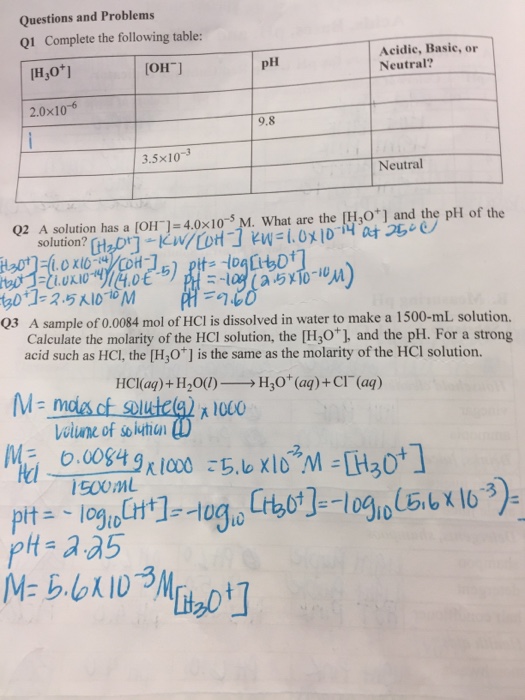 Questions and Problems
Q1 Complete the following table:
[H₃O⁺] [OH⁻] pH Acidic, Basic, or Neutral?
2.0×10⁻⁶
9.8
3.5×10⁻³
Neutral
Q2 A solution has a [OH⁻]=4.0×10⁻⁵ M. What are the [H₃O⁺] and the pH of the
solution? [H₃O⁺] - KW/[OH⁻] KW=1.0X10⁻¹⁴ at 25°C
H₃O⁺]=(1.0X10⁻¹⁴)/[OH⁻] pH=-log[H₃O⁺]
H₃O⁺]=(1.0X10⁻¹⁴)/(4.0E⁻5) pH=-log(2.5X10⁻¹⁰M)
H₃O⁺]=2.5X10⁻¹⁰M pH=9.60
Q3 A sample of 0.0084 mol of HCl is dissolved in water to make a 1500-mL solution.
Calculate the molarity of the HCl solution, the [H₃O⁺], and the pH. For a strong
acid such as HCl, the [H₃O⁺] is the same as the molarity of the HCl solution.
HCl(aq)+H₂O(l)⟶H₃O⁺(aq)+Cl⁻(aq)
M= moles of solute(g) x 1000
Volume of solution (L)
M HCl = 0.0084g x 1000 =5.6x10⁻³M=[H₃O⁺]
1500ML
pH=-log₁₀[H⁺]=-log₁₀[H₃O⁺]=-log₁₀(5.6x10⁻³)=
pH=2.25
M=5.6X10⁻³M[H₃O⁺]